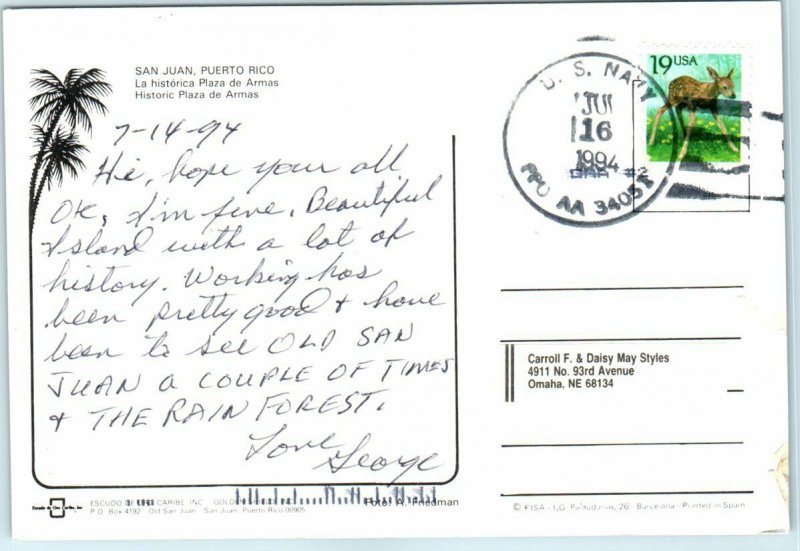 SAN JUAN, PUERTO RICO
La histórica Plaza de Armas
Historic Plaza de Armas
7-14-94
Hi, hope your all
OK, I'm fine. Beautiful
Island with a lot of
history. Working has
been pretty good & have
been to see OLD SAN
JUAN A COUPLE OF TIMES
& THE RAIN FOREST.
Love
George
U. S. NAVY
JUL
16
1994
FPO AA 34051
19 USA
Carroll F. & Daisy May Styles
4911 No. 93rd Avenue
Omaha, NE 68134
ESCUDO DE ORO CARIBE, INC.
P.O. Box 4192 Old San Juan San Juan, Puerto Rico 00905
Foto: A. Friedman
© FISA - I.G. Palaudarias, 26 Barcelona Printed in Spain